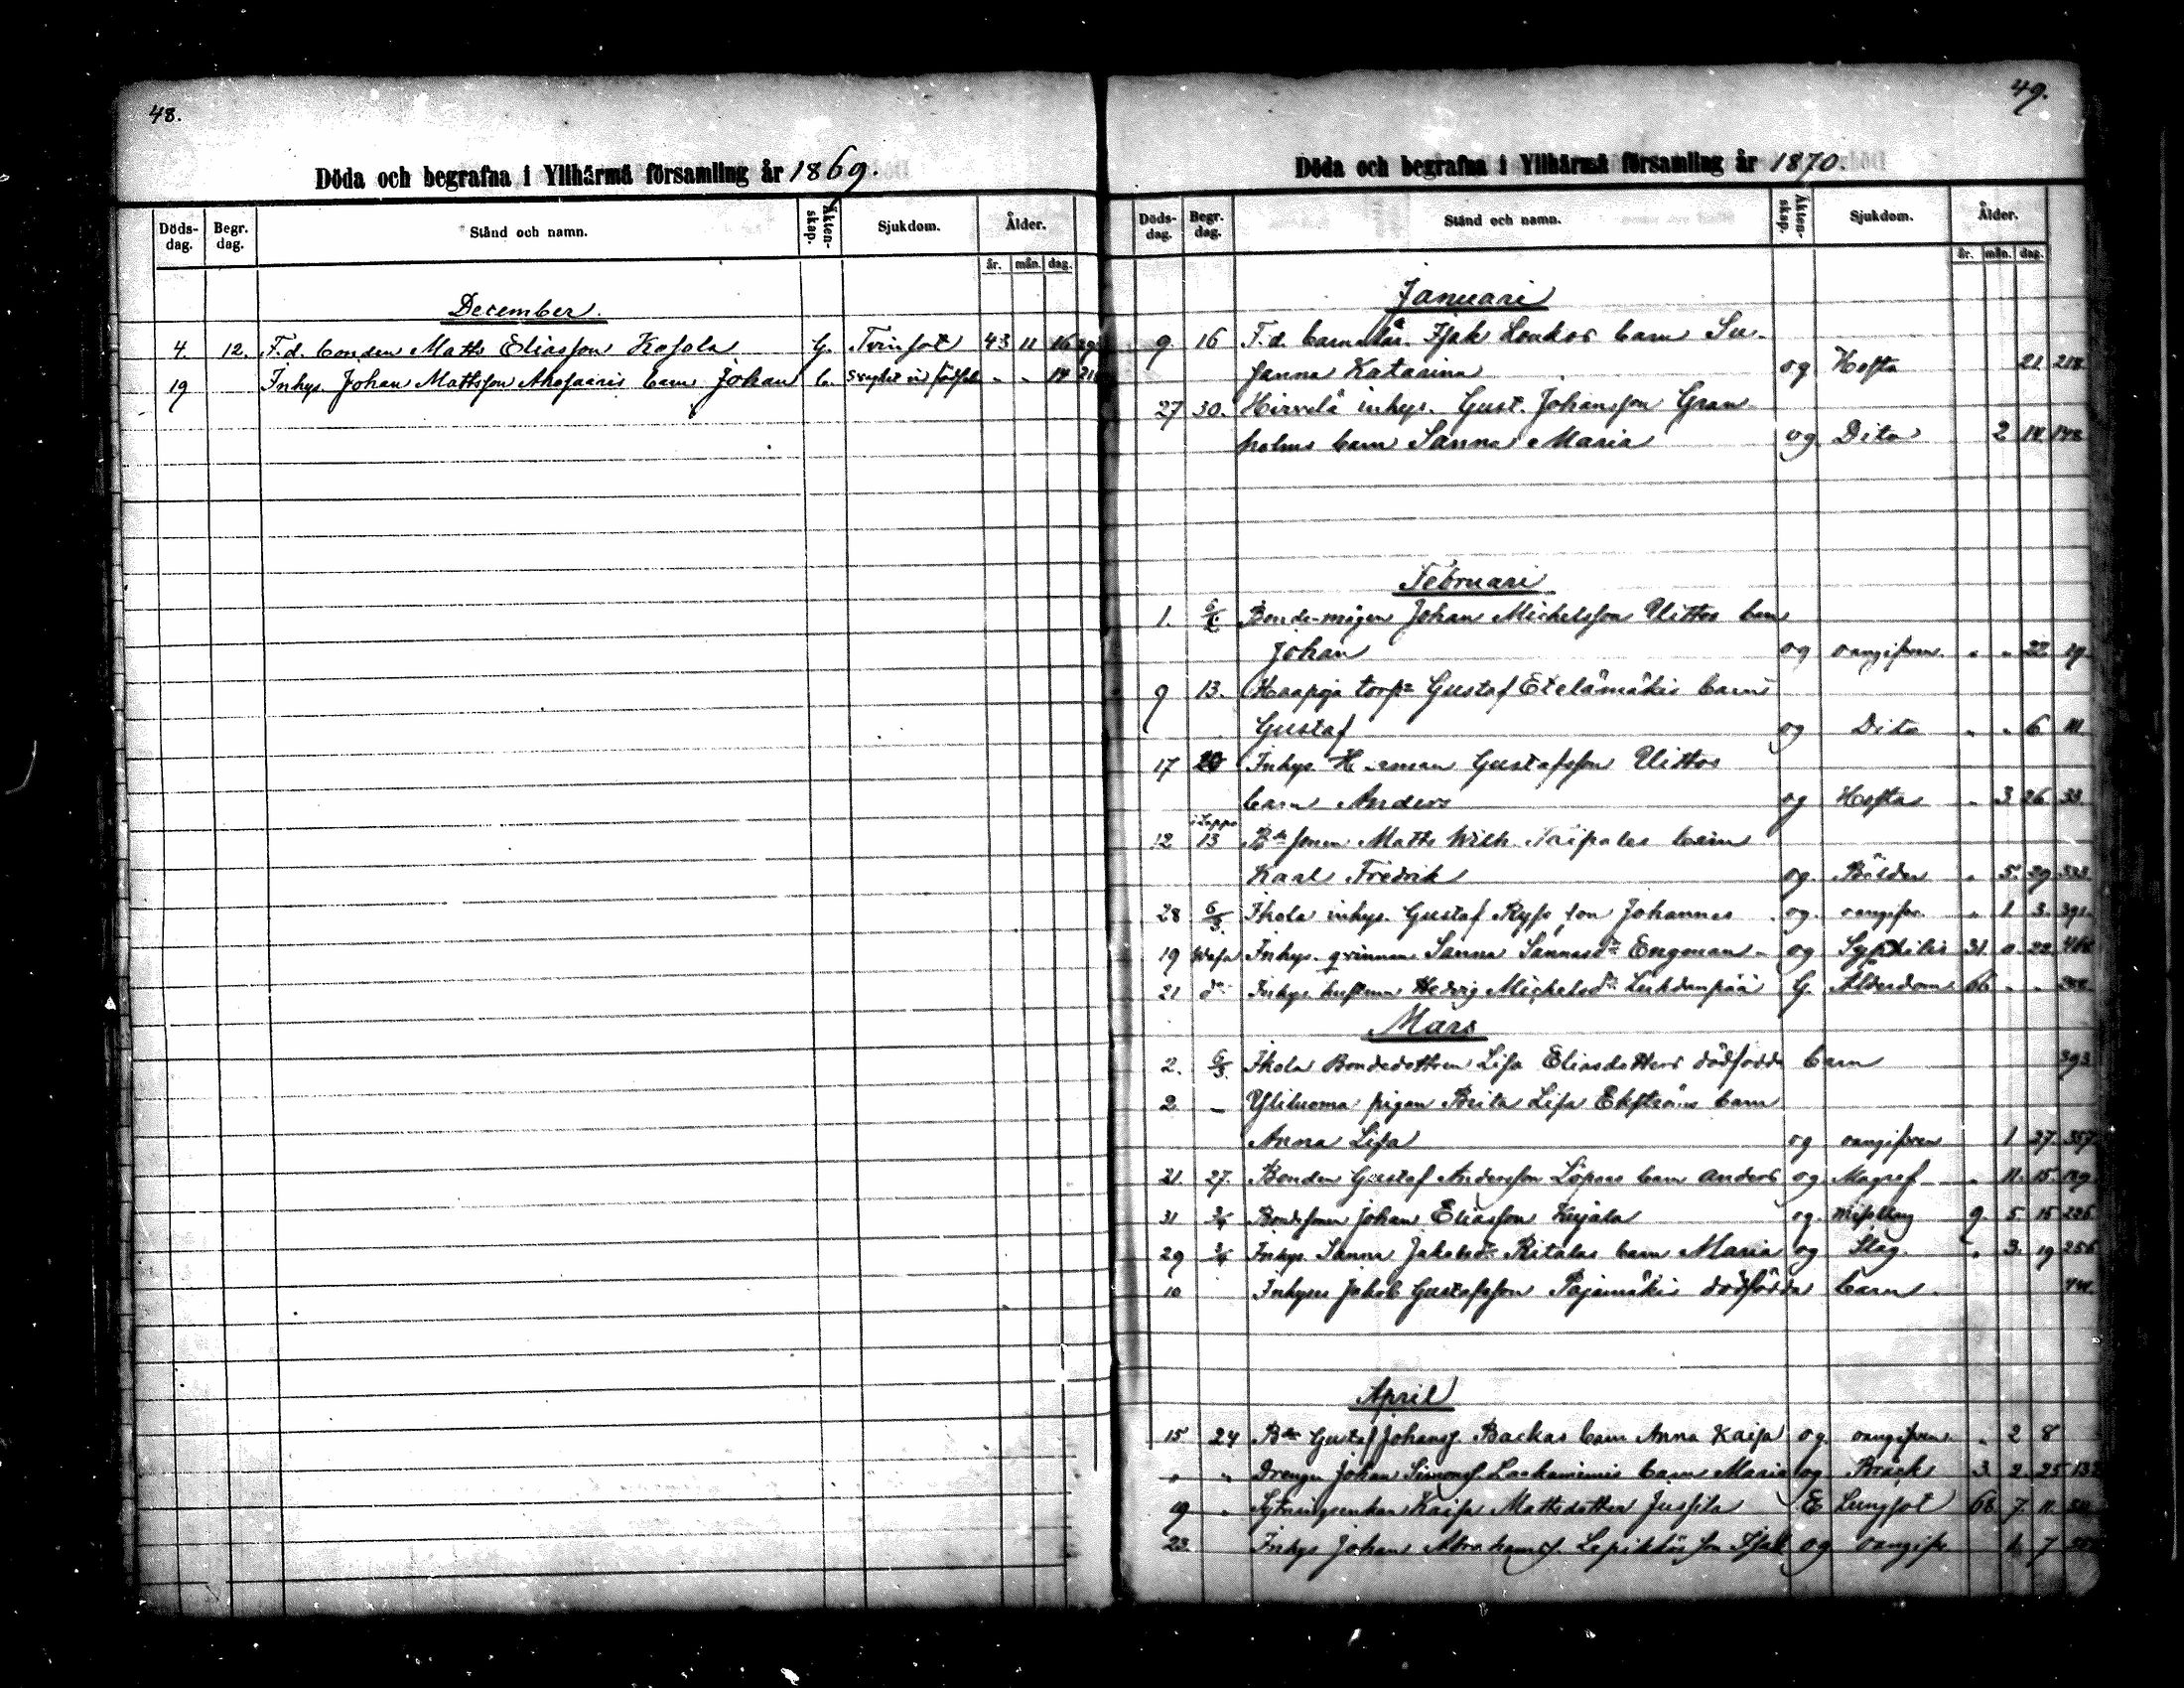 48.
Döda och begrafna i Ylihärmä församling år 1869.
Döds-dag. Begr. dag. Stånd och namn. Äkten-skap. Sjukdom. Ålder.
år. mån. dag.
December.
4. 12. F. d. bonden Matts Eliasson Kosola G. Tvinsot 43 11 16
19 Inhys. Johan Mattsson Ahosaaris barn Johan " " 14
49.
Döda och begrafna i Ylihärmä församling år 1870.
Döds-dag. Begr. dag. Stånd och namn. Äkten-skap. Sjukdom. Ålder.
år. mån. dag.
Januari
9 16 F. d. Isak Loukos barn Su-
sanna Katarina og Hosta 21 218
27 30. Hirvelä inhys. Gust. Johansson Gran-
holms barn Sanna Maria og Dito 2 14 142
Februari
1. 6/2 Bonde-mågen Johan Michelsson Uittos barn
Johan og oangifven " " 22 19
9 13. Haapoja torp. Gustaf Etelämäkis barn
Gustaf og Dito " " 6 111
17 20 Inhys. Herman Gustafsson Uittos
barn Anders og Hosta " 3 26 33
i Lappo
12 13 Bdesonen Matts Wilh. Taipales barn
Karl Fredrik og Bölder " 5. 29 533
28 6/3 Ikola inhys. Gustaf Ryss son Johannes og. oangifv. " 1 3. 391.
19 Wasa Inhys. qvinnan Sanna Sannasdr Engman og Syphilis 31. 0. 22
21 do Inhys. hustrun Hedvig Michelsdr G. Ålderdom 66 " "
Mars
2. 6/3 Ikola Bondedottren Lisa Eliasdotters dödfödda barn 393
2 – Yliluoma pigan Brita Lisa Ekströms barn
Anna Lisa og oangifven 1 27 357
21. 27. Bonden Gustaf Andersson Löpares barn Anders og Magref " 11. 15.
31 3/4 Bondsonen Johan Eliasson Kujala og. Messling 9 5. 15 225
29 3/4 Inhys. Sanna Jakobsdr Pitalas barn Maria og Slag. " 3. 19 256
10 Inhyses Jakob Gustafsson Pajamäkis dödfödda barn.
April
15 24 Bde Gustaf Johanss. Backas barn Anna Kaisa og. oangifven " 2 8
" " Drengen Johan Simonss. Laakaniemis barn Maria og Bråck 3. 2. 25 132
19 " Sytningsenkan Kaisa Mattsdotter Jussila E Lungsot 68. 7. 11.
23. Inhys Johan Abrahamss. son Isak og oangifv. 1. 7